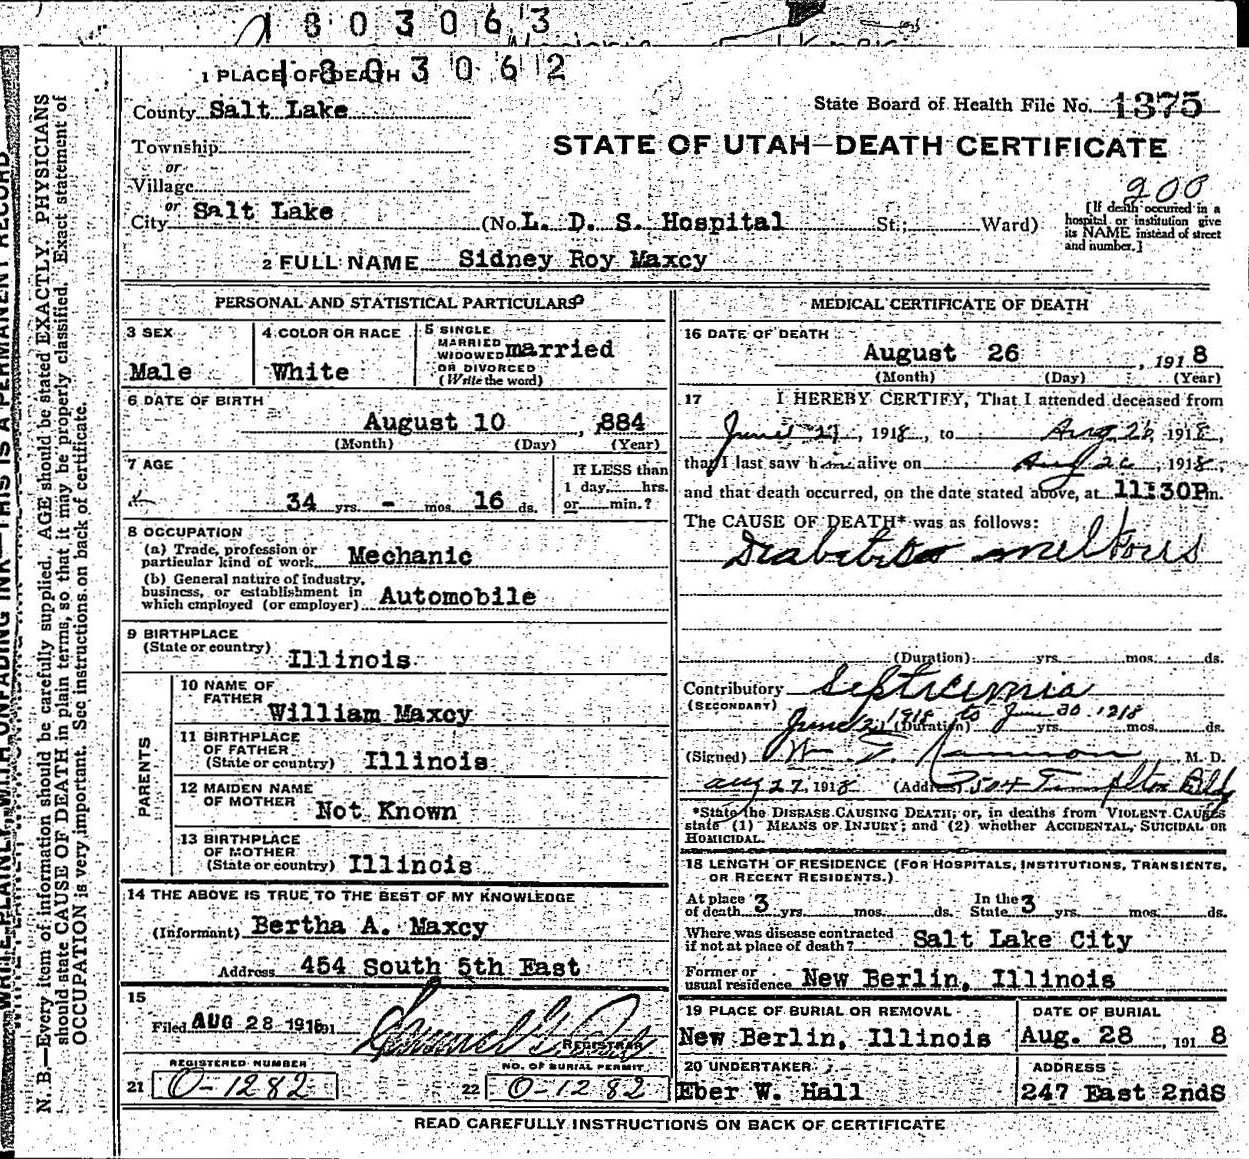 1803063
1803062
1 PLACE OF DEATH
County Salt Lake
State Board of Health File No. 1375
Township
or
Village
or
City Salt Lake
STATE OF UTAH—DEATH CERTIFICATE
200
(No. L. D. S. Hospital St.; Ward)
[If death occurred in a
hospital or institution give
its NAME instead of street
and number.]
2 FULL NAME Sidney Roy Maxcy
PERSONAL AND STATISTICAL PARTICULARS
3 SEX
Male
4 COLOR OR RACE
White
5 SINGLE
MARRIED
WIDOWED
OR DIVORCED
(Write the word)
married
6 DATE OF BIRTH
August 10, 884
(Month) (Day) (Year)
7 AGE
34 yrs. - mos. 16 ds.
If LESS than
1 day, hrs.
or min.?
8 OCCUPATION
(a) Trade, profession or
particular kind of work Mechanic
(b) General nature of industry,
business, or establishment in
which employed (or employer) Automobile
9 BIRTHPLACE
(State or country) Illinois
PARENTS
10 NAME OF
FATHER William Maxcy
11 BIRTHPLACE
OF FATHER
(State or country) Illinois
12 MAIDEN NAME
OF MOTHER Not Known
13 BIRTHPLACE
OF MOTHER
(State or country) Illinois
14 THE ABOVE IS TRUE TO THE BEST OF MY KNOWLEDGE
(Informant) Bertha A. Maxcy
Address 454 South 5th East
15
Filed AUG 28 1918 191
REGISTRAR
REGISTERED NUMBER
21 O-1282
NO. OF BURIAL PERMIT
22 O-1282
MEDICAL CERTIFICATE OF DEATH
16 DATE OF DEATH
August 26, 1918
(Month) (Day) (Year)
17 I HEREBY CERTIFY, That I attended deceased from
June 27, 1918, to Aug 26 1918,
that I last saw him alive on Aug 26, 1918,
and that death occurred, on the date stated above, at 11:30P m.
The CAUSE OF DEATH* was as follows:
Diabetes mellitus
(Duration) yrs. mos. ds.
Contributory Septicemia
(SECONDARY)
1918 to June 30 1918
(Duration) yrs. mos. ds.
(Signed) M. D.
Aug 27, 1918 (Address) 504 Templton Bldg
*State the DISEASE CAUSING DEATH; or, in deaths from VIOLENT CAUSES
state (1) MEANS OF INJURY; and (2) whether ACCIDENTAL, SUICIDAL OR
HOMICIDAL.
18 LENGTH OF RESIDENCE (FOR HOSPITALS, INSTITUTIONS, TRANSIENTS,
OR RECENT RESIDENTS.)
At place
of death 3 yrs. mos. ds.
In the
State 3 yrs. mos. ds.
Where was disease contracted
if not at place of death? Salt Lake City
Former or
usual residence New Berlin, Illinois
19 PLACE OF BURIAL OR REMOVAL
New Berlin, Illinois
DATE OF BURIAL
Aug. 28, 1918
20 UNDERTAKER
Eber W. Hall
ADDRESS
247 East 2ndS
READ CAREFULLY INSTRUCTIONS ON BACK OF CERTIFICATE
WRITE PLAINLY WITH UNFADING INK—THIS IS A PERMANENT RECORD
N. B.—Every item of information should be carefully supplied. AGE should be stated EXACTLY. PHYSICIANS
should state CAUSE OF DEATH in plain terms, so that it may be properly classified. Exact statement of
OCCUPATION is very important. See instructions on back of certificate.